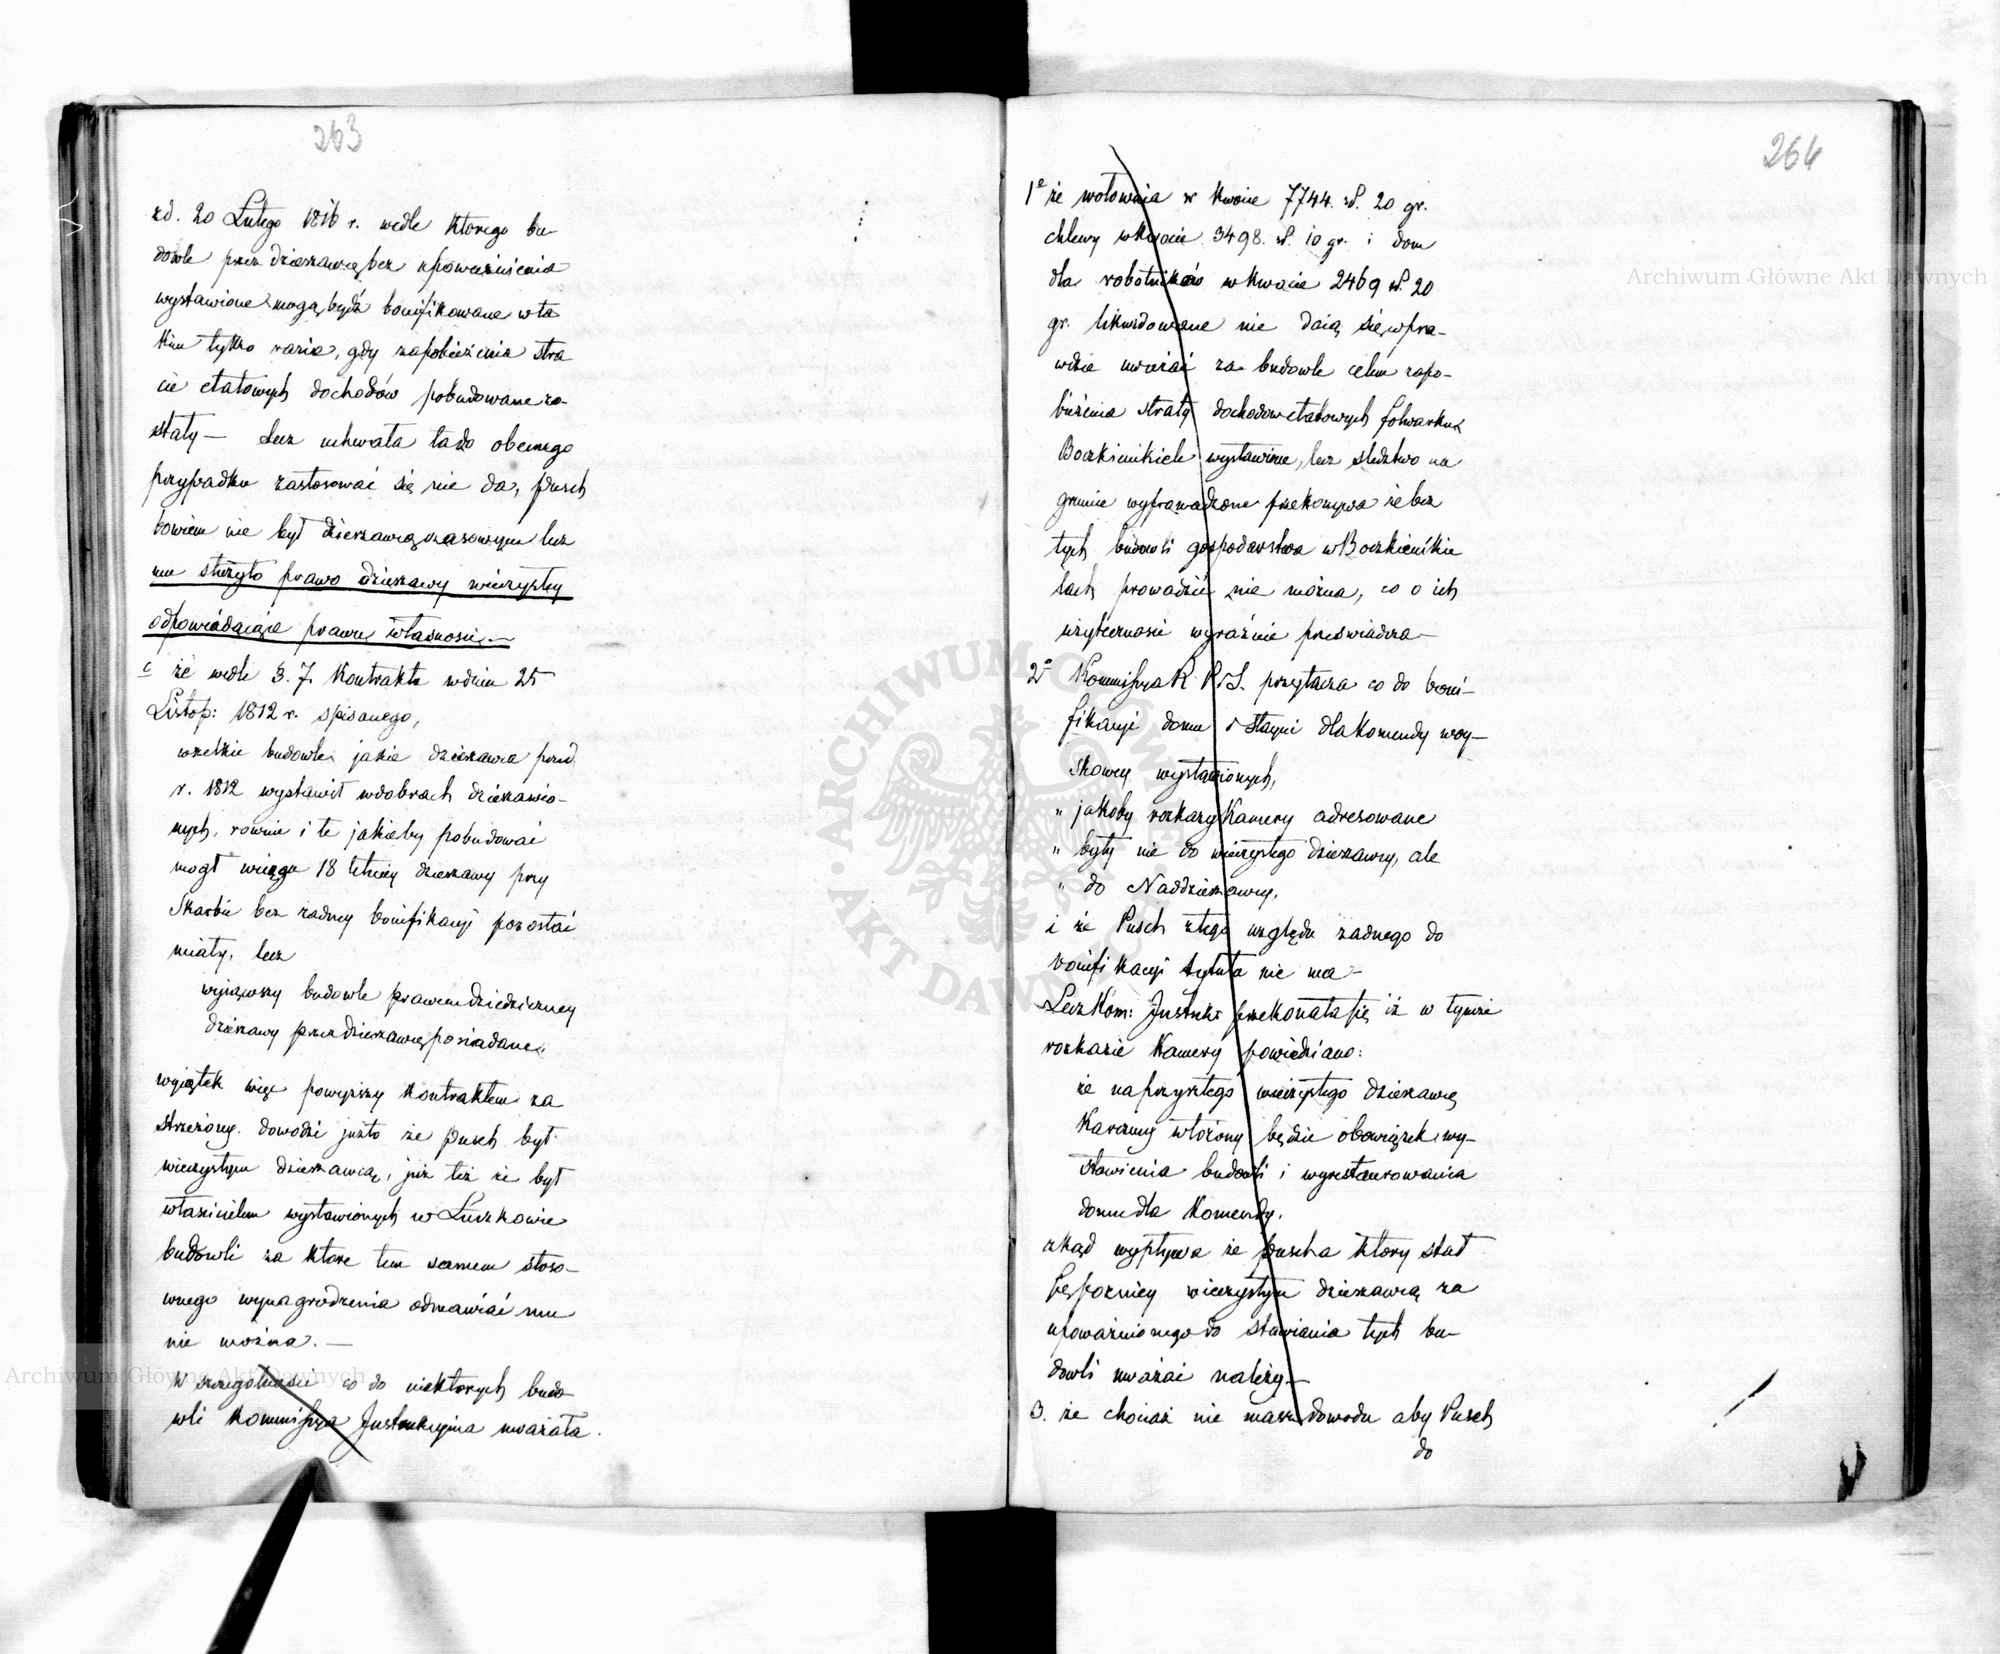 263
zd. 20 Lutego 1816 r. wedle ktorego bu-
dowle przez dzierzawcę bez upoważnienia
wystawione mogą bydź bonifikowane w ta
kim tylko razie, gdy zapobieżenia stra
cie etatowych dochodów pobudowane zo-
stały — Lecz uchwała ta do obecnego
przypadku zastosować się nie da, Pusch
bowiem nie był dzierzawcą czasowym lecz
mu służyło prawo dzierzawy wieczystey
odpowiadaiące prawu własności. —
c że wedle §. 7. Kontraktu w dniu 25
Listop: 1812 r. spisanego,
wszelkie budowle jakie dzierzawca przed
r. 1812 wystawił w dobrach dzierzawio-
nych, rownie i te jakieby pobudować
mogł wciągu 18 letniey dzierzawy przy
Skarbie bez zadney bonifikacyi pozostać
miały, lecz
wyiąwszy budowle prawem dziedziczney
dzierzawy przez dzierzawcę posiadane.
wyiątek więc powyższy kontraktem za
strzeżony. dowodzi juzto ze Pusch był
wieczystym dzierzawcą, już też że był
włascicielem wystawionych w Luszkowie
budowli za ktore tem samem stoso-
wnego wynagrodzenia odmawiać mu
nie można. —
W szczegolności co do niektorych budo
wli Kommissya Instrukcyina uważała.
264
1° że wołownia w kwocie 7744. zł. 20 gr.
chlewy w kwocie 3498. zł. 10 gr. i dom
dla robotników w kwocie 2469 zł. 20
gr. likwidowane nie daią się wpra-
wdzie uważać za budowle celem zapo-
bieżenia straty dochodow etatowych folwarku
wystawione, lecz sledztwo na
gruncie wyprowadzone przekonywa że bez
tych budowli gospodarstwa w
lach prowadzić nie można, co o ich
użyteczności wyraźnie przeświadcza —
2° Kommissya R. P. i S. przytacza co do boni-
fikacyi domu i stayni dla Komendy woy-
skowey wystawionych,
" jakoby rozkazy Kamery adresowane
" były nie do wieczystego dzierzawcy, ale
" do Naddzierzawcy,
i że Pusch z tego względu zadnego do
bonifikacyi tytułu nie ma —
Lecz Kom: Instruk: przekonała się iż w tymże
rozkazie Kamery powiedziano:
że na przyszłego wieczystego dzierzawcę
Karczmy włożony będzie obowiązek wy-
stawienia budowli i wyrestaurowania
domu dla Komendy.
zkąd wypływa że Puscha ktory stał
się pozniey wieczystym dzierzawcą za
upoważnionego do stawiania tych bu-
dowli uważać należy —
3. że chociaż nie masz dowodu aby Pusch
do
Archiwum Główne Akt Dawnych
Archiwum Główne Akt Dawnych
ARCHIWUM GŁÓWNE AKT DAWNYCH